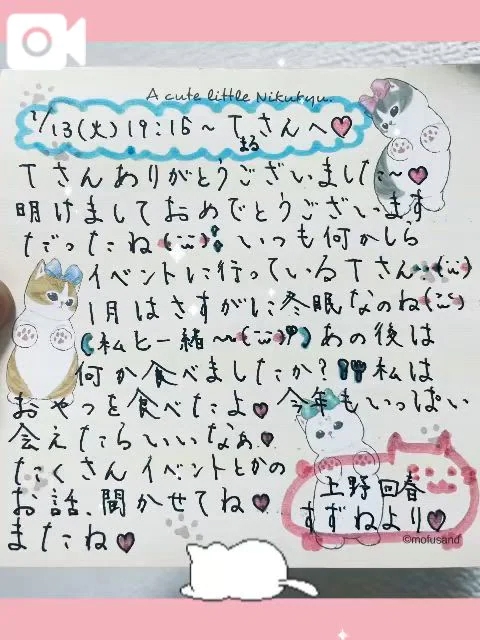 A cute little Nikukyu.
1/13(火)19:15~Tさんへ♥
まる
Tさんありがとうございました~♥
明けましておめでとうございます
だったね(¨̮) いつも何かしら
イベントに行っているTさん…(¨̮)
1月はさすがに冬眠なのね(¨̮)
(私と一緒~(¨̮)) あの後は
何か食べましたか?私は
おやつを食べたよ♥ 今年もいっぱい
会えたらいいなぁ♥
たくさんイベントとかの
お話、聞かせてね♥
またね♥
上野回春
すずねより♥
©mofusand